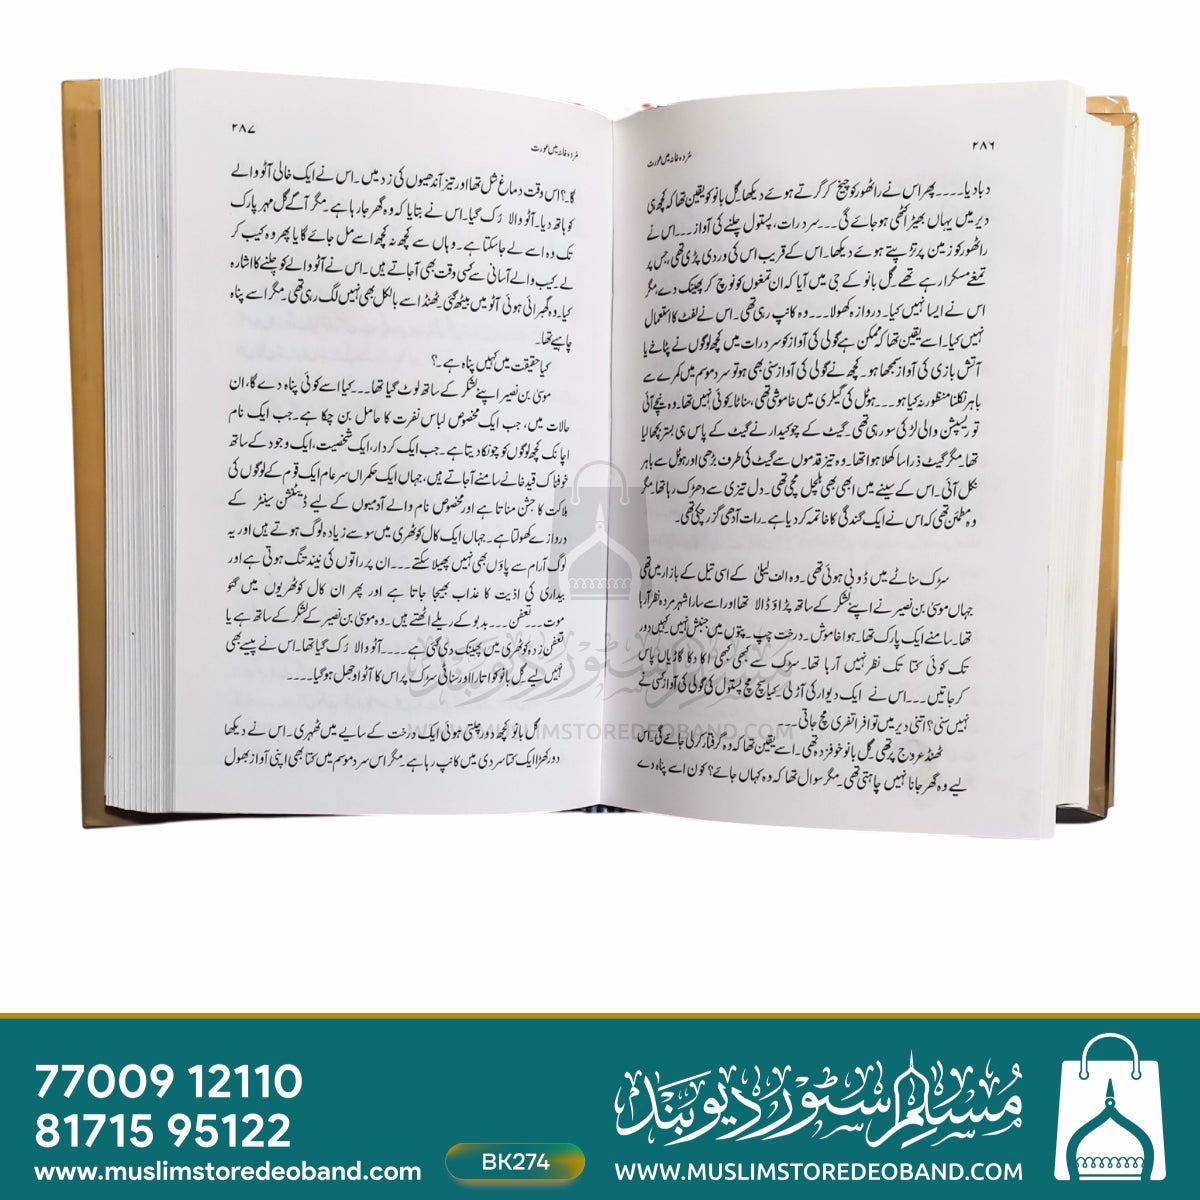 ۲۸۶
مُردہ خانہ میں عورت
دبا دیا۔۔۔۔ پھر اس نے راٹھور کو چیخ کر گرتے ہوئے دیکھا۔ گل بانو کو یقین تھا کہ کچھ ہی
دیر میں یہاں بھیڑ اکٹھی ہو جائے گی۔۔۔۔ سرد رات، پستول چلنے کی آواز۔۔۔ اس نے
راٹھور کو زمین پر تڑپتے ہوئے دیکھا۔ اس کے قریب اس کی وردی پڑی تھی، جس پر
تمغے مسکرا رہے تھے۔ گل بانو کے جی میں آیا کہ ان تمغوں کو نوچ کر پھینک دے، مگر
اس نے ایسا نہیں کیا۔ دروازہ کھولا۔۔۔۔ وہ کانپ رہی تھی۔ اس نے لفٹ کا استعمال
نہیں کیا۔ اسے یقین تھا کہ ممکن ہے گولی کی آواز کو سرد رات میں کچھ لوگوں نے پٹاخے یا
آتش بازی کی آواز سمجھا ہو۔ کچھ نے گولی کی آواز سنی بھی ہو تو سرد موسم میں کمرے سے
باہر نکلنا منظور نہ کیا ہو۔۔۔۔ ہوٹل کی گیلری میں خاموشی تھی، سناٹا۔ کوئی نہیں تھا۔ وہ نیچے آئی
تو ریسپشن والی لڑکی سو رہی تھی۔ گیٹ کے چوکیدار نے گیٹ کے پاس ہی بستر بچھا لیا
تھا۔ مگر گیٹ ذرا سا کھلا ہوا تھا۔ وہ تیز قدموں سے گیٹ کی طرف بڑھی اور ہوٹل سے باہر
نکل آئی۔ اس کے سینے میں ابھی بھی ہلچل مچی تھی۔ دل تیزی سے دھڑک رہا تھا۔ مگر
وہ مطمئن تھی کہ اس نے ایک گندگی کا خاتمہ کر دیا ہے۔ رات آدھی گزر چکی تھی۔
سڑک سناٹے میں ڈوبی ہوئی تھی۔ وہ الف لیلیٰ کے اسی تیل کے بازار میں تھی
جہاں موسیٰ بن نصیر نے اپنے لشکر کے ساتھ پڑاؤ ڈالا تھا اور اسے سارا شہر مردہ نظر آ رہا
تھا۔ سامنے ایک پارک تھا۔ ہوا خاموش۔ درخت چپ۔ پتوں میں جنبش نہیں۔ کہیں دور
تک کوئی کتا تک نظر نہیں آ رہا تھا۔ سڑک سے کبھی کبھی اکا دکا گاڑیاں پاس
کر جاتیں۔۔۔۔ اس نے ایک دیوار کی آڑ لی۔ کیا سچ مچ پستول کی گولی کی آواز کسی نے
نہیں سنی؟ اتنی دیر میں تو افراتفری مچ جاتی۔۔۔
ٹھنڈ عروج پر تھی۔ گل بانو خوفزدہ تھی۔ اسے یقین تھا کہ وہ گرفتار کر لی جائے گی۔ اس
لیے وہ گھر جانا نہیں چاہتی تھی۔ مگر سوال تھا کہ وہ کہاں جائے؟ کون اسے پناہ دے
۲۸۷
مُردہ خانہ میں عورت
گا۔؟ اس وقت دماغ شل تھا اور تیز آندھیوں کی زد میں۔ اس نے ایک خالی آٹو والے
کو ہاتھ دیا۔ آٹو والا رُک گیا۔ اس نے بتایا کہ وہ گھر جا رہا ہے۔ مگر آگے گل مہر پارک
تک وہ اسے لے جا سکتا ہے۔ وہاں سے کچھ نہ کچھ اسے مل جائے گا یا پھر وہ کیب کر
لے۔ کیب والے آسانی سے کسی وقت بھی آ جاتے ہیں۔ اس نے آٹو والے کو چلنے کا اشارہ
کیا۔ وہ گھبرائی ہوئی آٹو میں بیٹھ گئی۔ ٹھنڈ اسے بالکل بھی نہیں لگ رہی تھی۔ مگر اسے پناہ
چاہیے تھا۔
کیا حقیقت میں کہیں پناہ ہے۔؟
موسیٰ بن نصیر اپنے لشکر کے ساتھ لوٹ گیا تھا۔۔۔ کیا اسے کوئی پناہ دے گا، ان
حالات میں، جب ایک مخصوص لباس نفرت کا حامل بن چکا ہے۔ جب ایک نام
اچانک کچھ لوگوں کو چونکا دیتا ہے۔ جب ایک کردار، ایک شخصیت، ایک وجود کے ساتھ
خوفناک قید خانے سامنے آ جاتے ہیں، جہاں ایک حکمراں سر عام ایک قوم کے لوگوں کی
ہلاکت کا جشن مناتا ہے اور مخصوص نام والے آدمیوں کے لیے ڈیٹنشن سینٹر کے
دروازے کھولتا ہے۔ جہاں ایک کال کوٹھری میں سو سے زیادہ لوگ ہوتے ہیں اور یہ
لوگ آرام سے پاؤں بھی نہیں پھیلا سکتے۔۔۔ ان پر راتوں کی نیند تنگ ہوتی ہے اور
بیداری کی اذیت کا عذاب بھیجا جاتا ہے اور پھر ان کال کوٹھریوں میں
موت۔۔ تعفن۔۔۔ بدبو کے ریلے اٹھتے ہیں۔ وہ موسیٰ بن نصیر کے لشکر کے ساتھ ہے یا
تعفن زدہ کوٹھری میں پھینک دی گئی ہے۔۔۔۔ آٹو والا رک گیا تھا۔ اس نے پیسے بھی
نہیں لیے۔ گل بانو کو اتارا اور سناٹی سڑک پر اس کا آٹو اوجھل ہو گیا۔۔۔۔
گل بانو کچھ دور چلتی ہوئی ایک درخت کے سایے میں ٹھہری۔ اس نے دیکھا
دور کھڑا ایک کتا سردی میں کانپ رہا ہے۔ مگر اس سرد موسم میں کتا بھی اپنی آواز بھول
مسلم سٹور دیوبند
WWW.MUSLIMSTOREDEOBAND.COM
77009 12110
81715 95122
www.muslimstoredeoband.com
BK274
مُسلم سٹور دیوبند
WWW.MUSLIMSTOREDEOBAND.COM